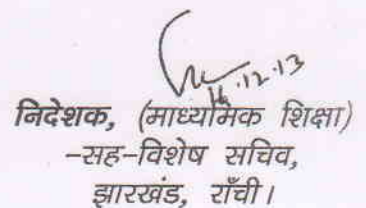 16.12.13
निदेशक, (माध्यमिक शिक्षा)
-सह-विशेष सचिव,
झारखंड, राँची।